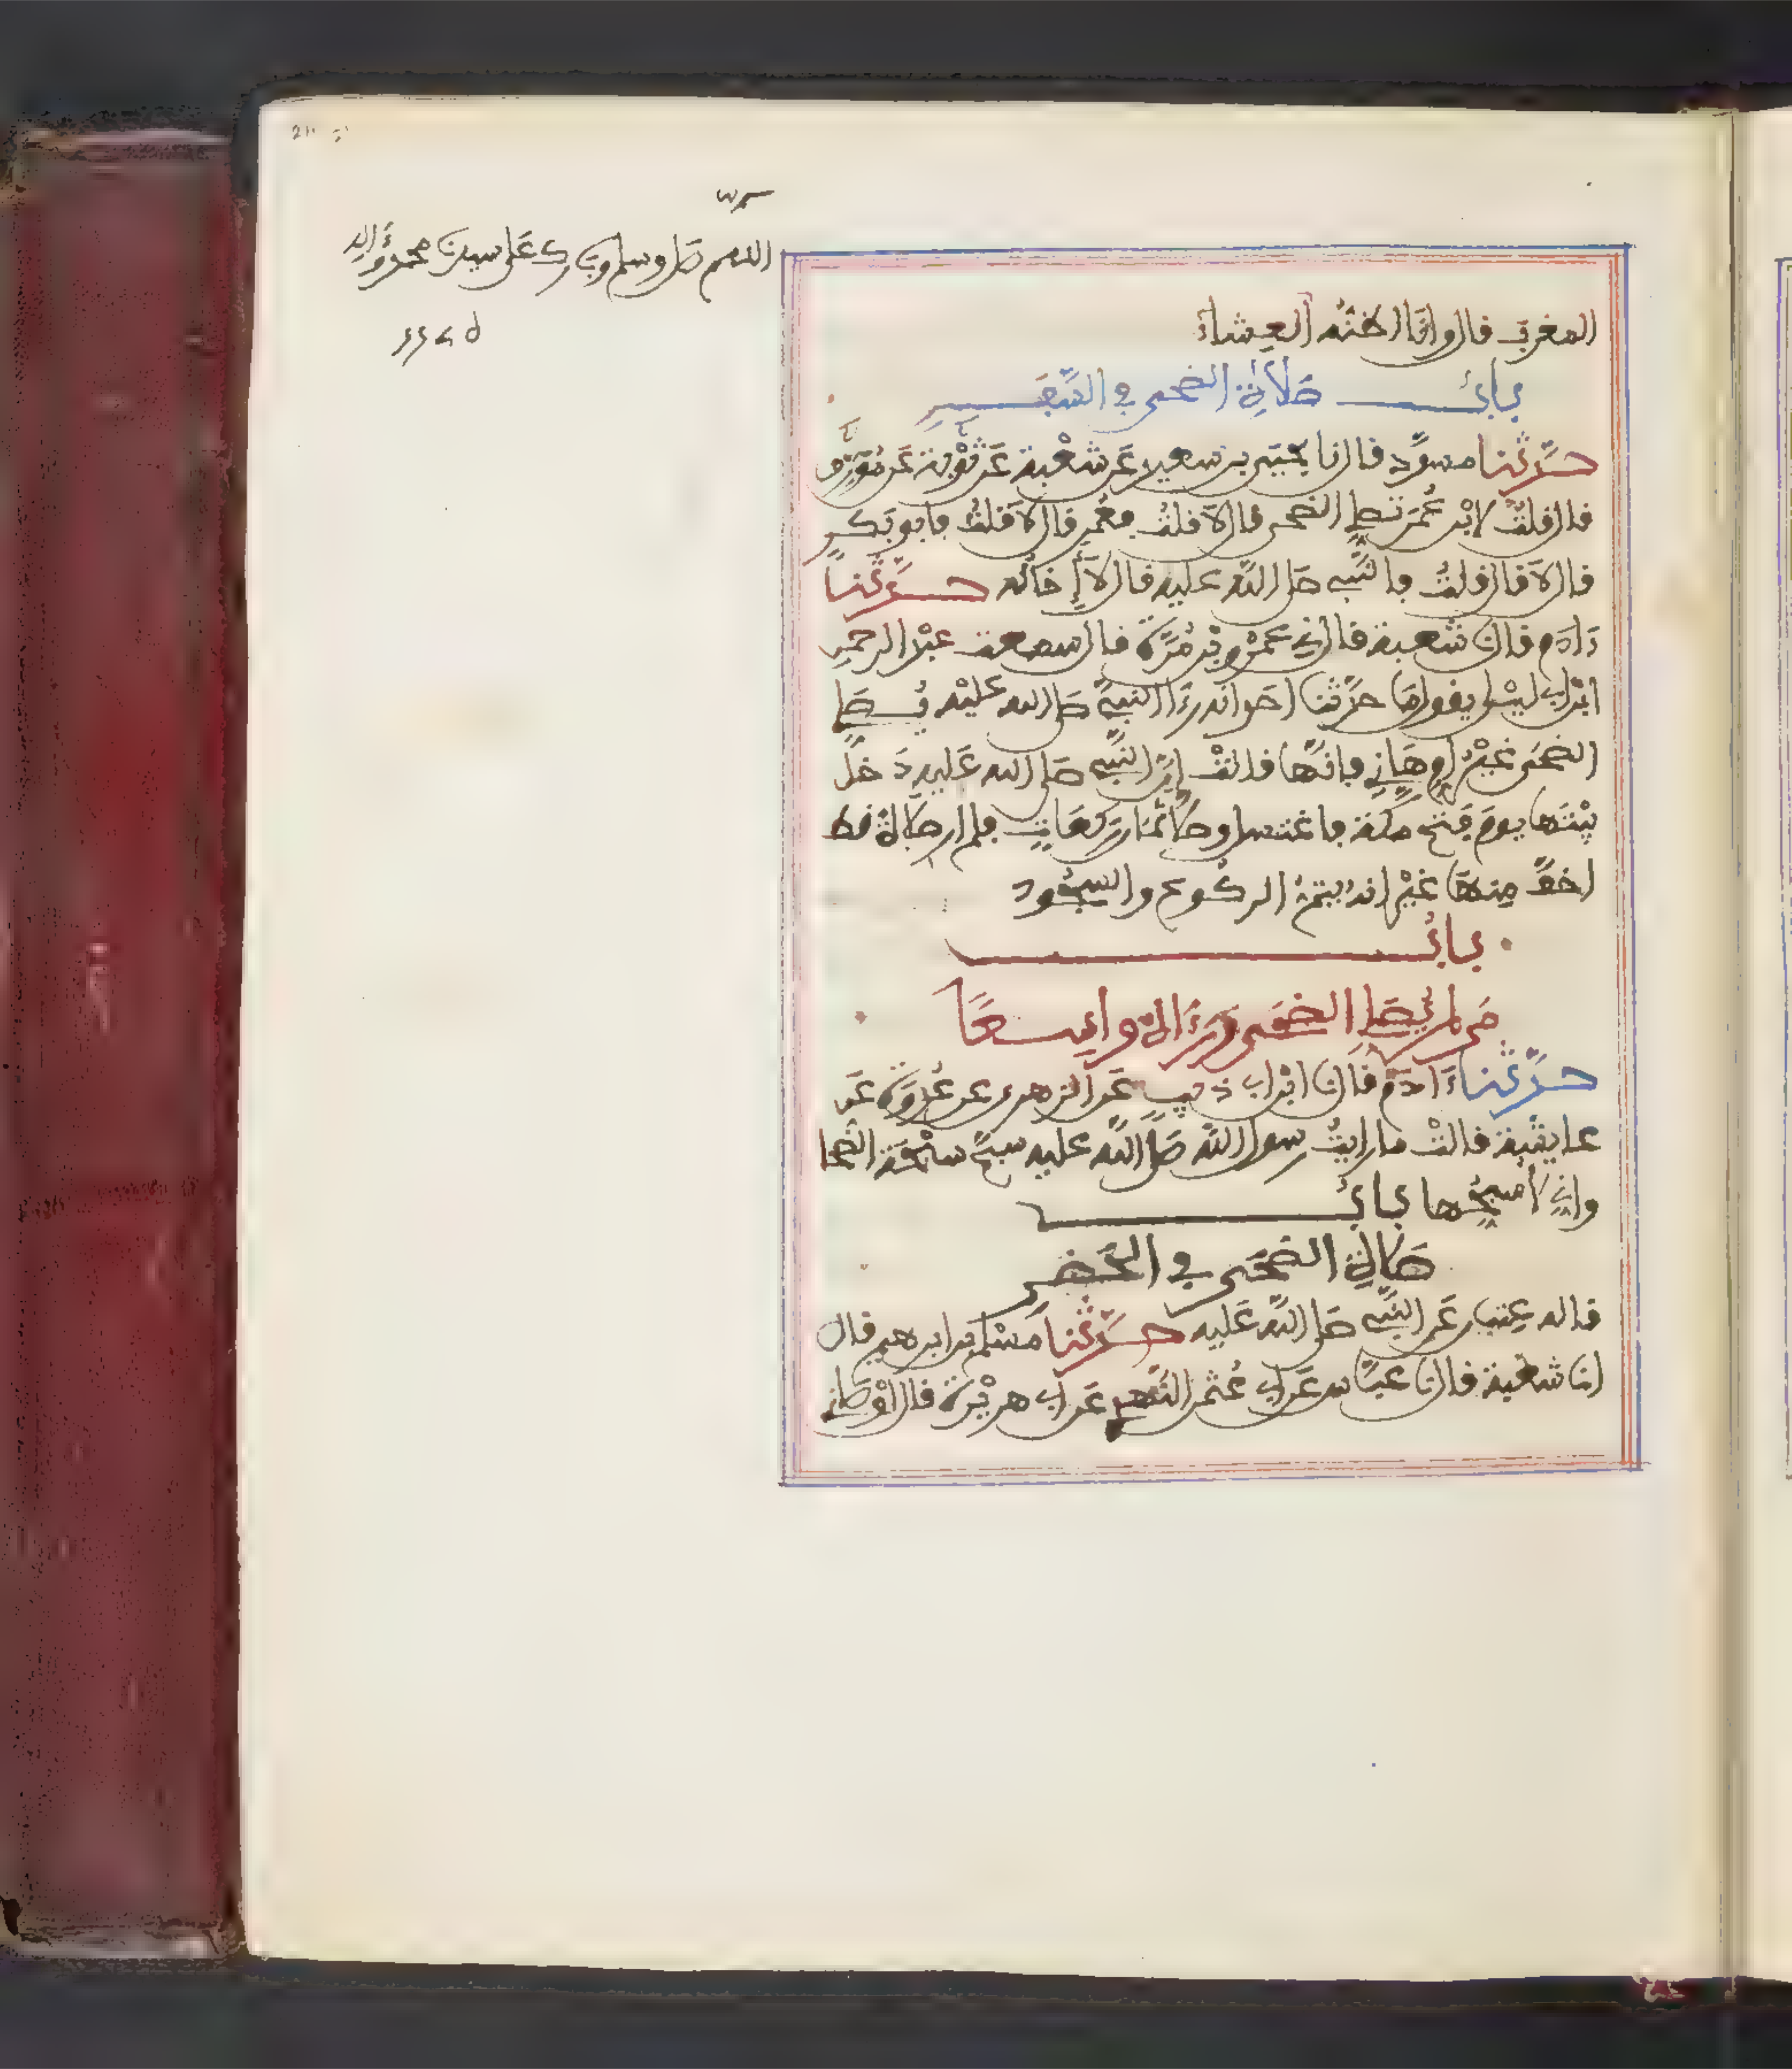 اللهم صل وسلم وبارك على سيدنا محمد وءاله
المغرب قال وانا اظنه العشاء
باب صلاة الضحى في السفر
حدثنا مسدد قال نا يحيى بن سعيد عن شعبة عن توبة عن مورق
قال قلت لابن عمر تصلي الضحى قال لا قلت فعمر قال لا قلت فابو بكر
قال لا قال قلت فالنبي صلى الله عليه قال لا إخاله حدثنا
ءادم قال نا شعبة قال ني عمرو بن مرة قال سمعت عبد الرحمن
ابن ابي ليلى يقول ما حدثنا احد انه رءا النبي صلى الله عليه يصلي
الضحى غير ام هانئ فانها قالت إن النبي صلى الله عليه دخل
بيتها يوم فتح مكة فاغتسل وصلى ثمان ركعات فلم ار صلاة قط
اخف منها غير انه يتم الركوع والسجود
باب
من لم يصل الضحى ورءاه واسعا
حدثنا ءادم قال نا ابن ابي ذيب عن الزهري عن عروة عن
عايشة قالت ما رايت رسول الله صلى الله عليه سبح سبحة الضحا
واني لاسبحها باب
صلاة الضحى في الحضر
قاله عتبان عن النبي صلى الله عليه حدثنا مسلم بن ابرهيم قال
انا شعبة قال نا عباس عن ابي عثمن النهدي عن ابي هريرة قال اوصاني